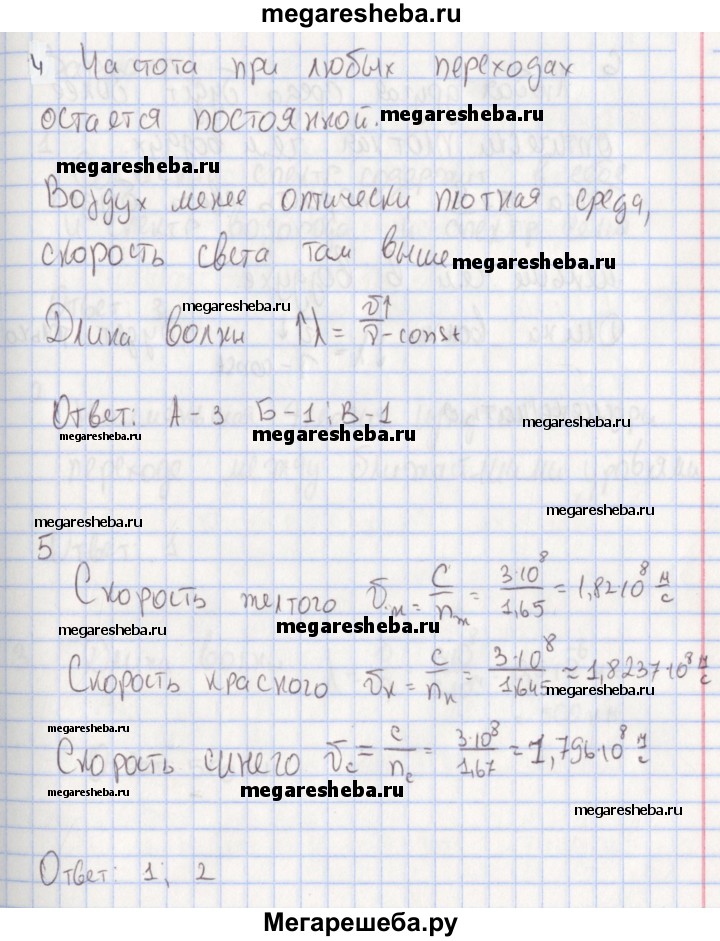 megaresheba.ru
4 Частота при любых переходах
остается постоянной. megaresheba.ru
megaresheba.ru
Воздух менее оптически плотная среда,
скорость света там выше megaresheba.ru
megaresheba.ru megaresheba.ru
Длина волны ↑λ = υ↑/ν-const
Ответ: А-3 Б-1; В-1
megaresheba.ru megaresheba.ru megaresheba.ru
megaresheba.ru
5 megaresheba.ru
Скорость желтого υж = c/nж = 3·10⁸/1,65 = 1,82·10⁸ м/с
megaresheba.ru megaresheba.ru megaresheba.ru
Скорость красного υк = c/nк = 3·10⁸/1,645 ≈ 1,8237·10⁸ м/с
megaresheba.ru
megaresheba.ru
Скорость синего υс = c/nс = 3·10⁸/1,67 = 1,796·10⁸ м/с
megaresheba.ru megaresheba.ru
megaresheba.ru
Ответ: 1; 2
Мегарешеба.ру